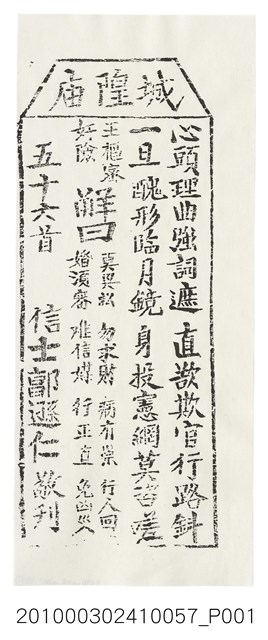 城隍庙
心頭理曲強詞遮 直欲欺官行路斜
一旦醜形臨月鏡 身投憲網莫咨嗟
王樞密
奸險
解曰
莫興訟 勿求財 病有祟 行人回
婚須審 难信媒 行正直 免凶災
五十六首 信士郭遜仁敬刊
201000302410057_P001